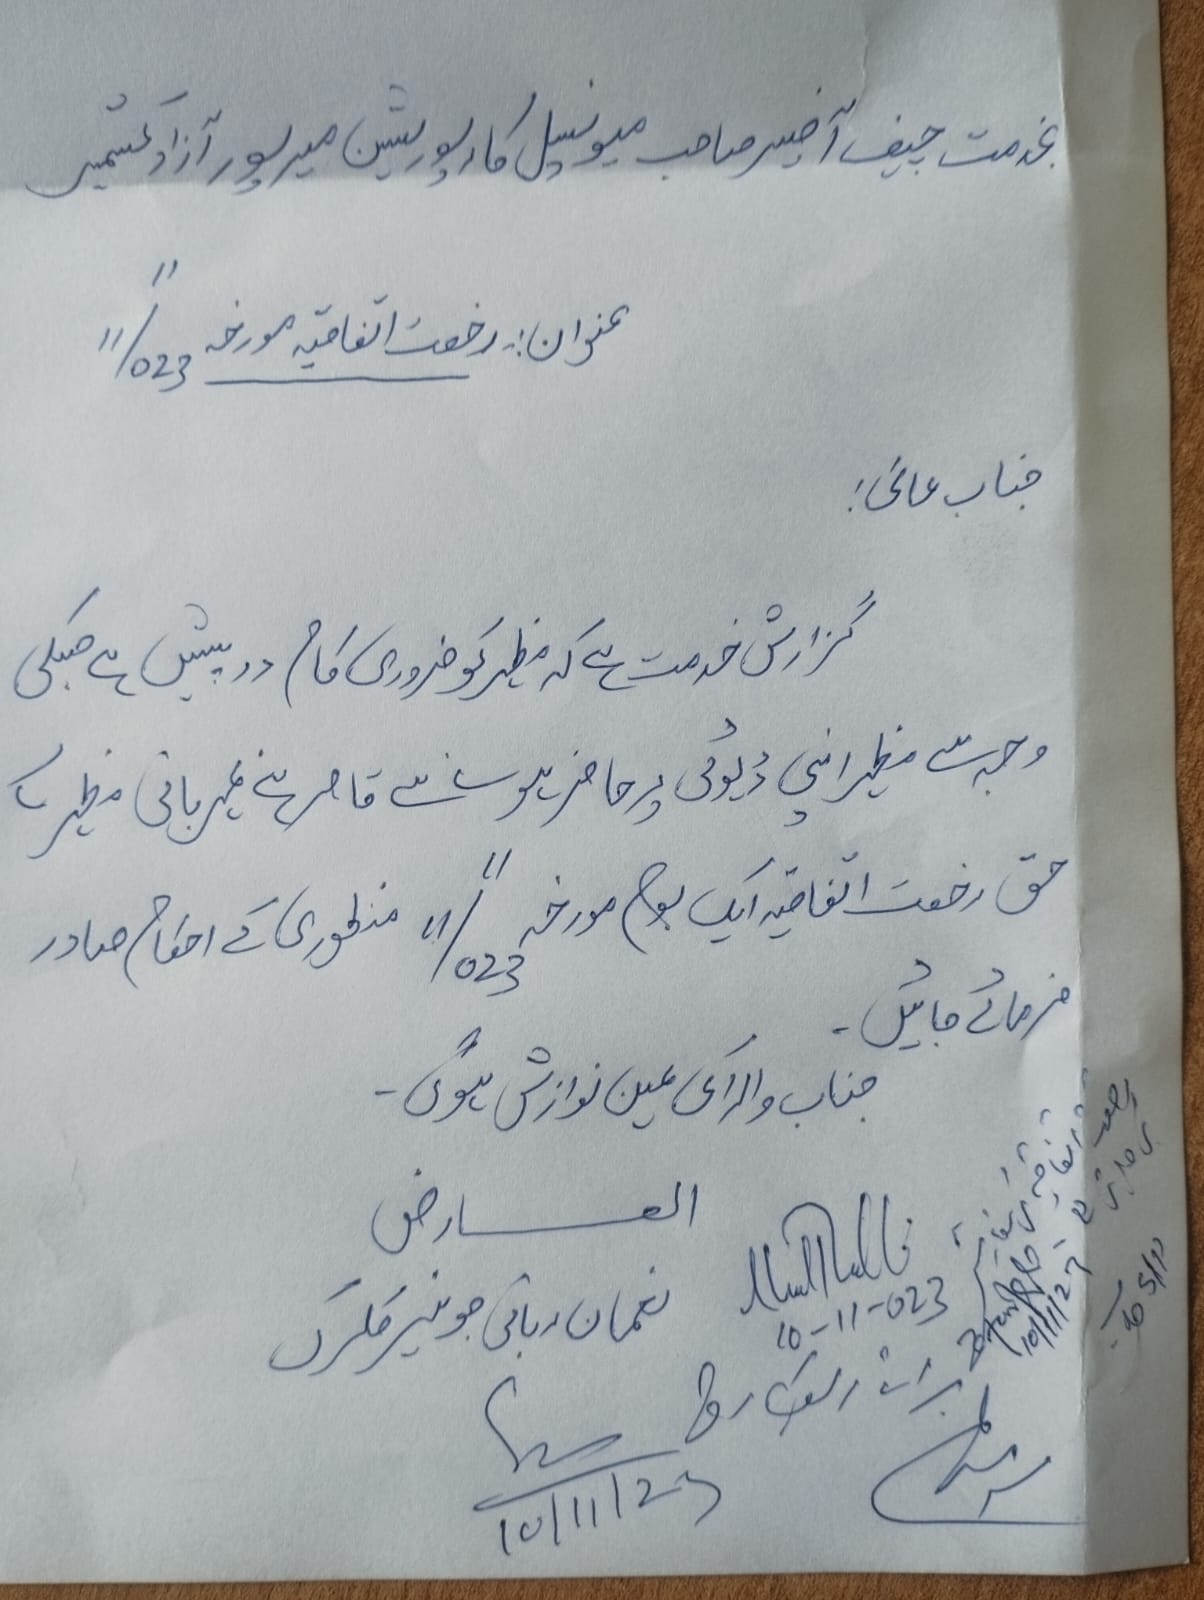 بخدمت چیف آفیسر صاحب میونسپل کارپوریشن میرپور آزاد کشمیر
عنوان:۔ رخصت اتفاقیہ مورخہ 11/11/023
جناب عالی!
گزارش خدمت ہے کہ مظہر کو ضروری کام درپیش ہے جسکی
وجہ سے مظہر اپنی ڈیوٹی پر حاضر ہونے سے قاصر ہے مہربانی مظہر کے
حق رخصت اتفاقیہ ایک یوم مورخہ 11/11/023 منظوری کے احکام صادر
فرمائے جائیں۔
جناب والا کی عین نوازش ہو گی۔
العارض
نعمان ربانی جونیئر کلرک
10-11-023
10/11/23
برائے ریکارڈ
10/11/23